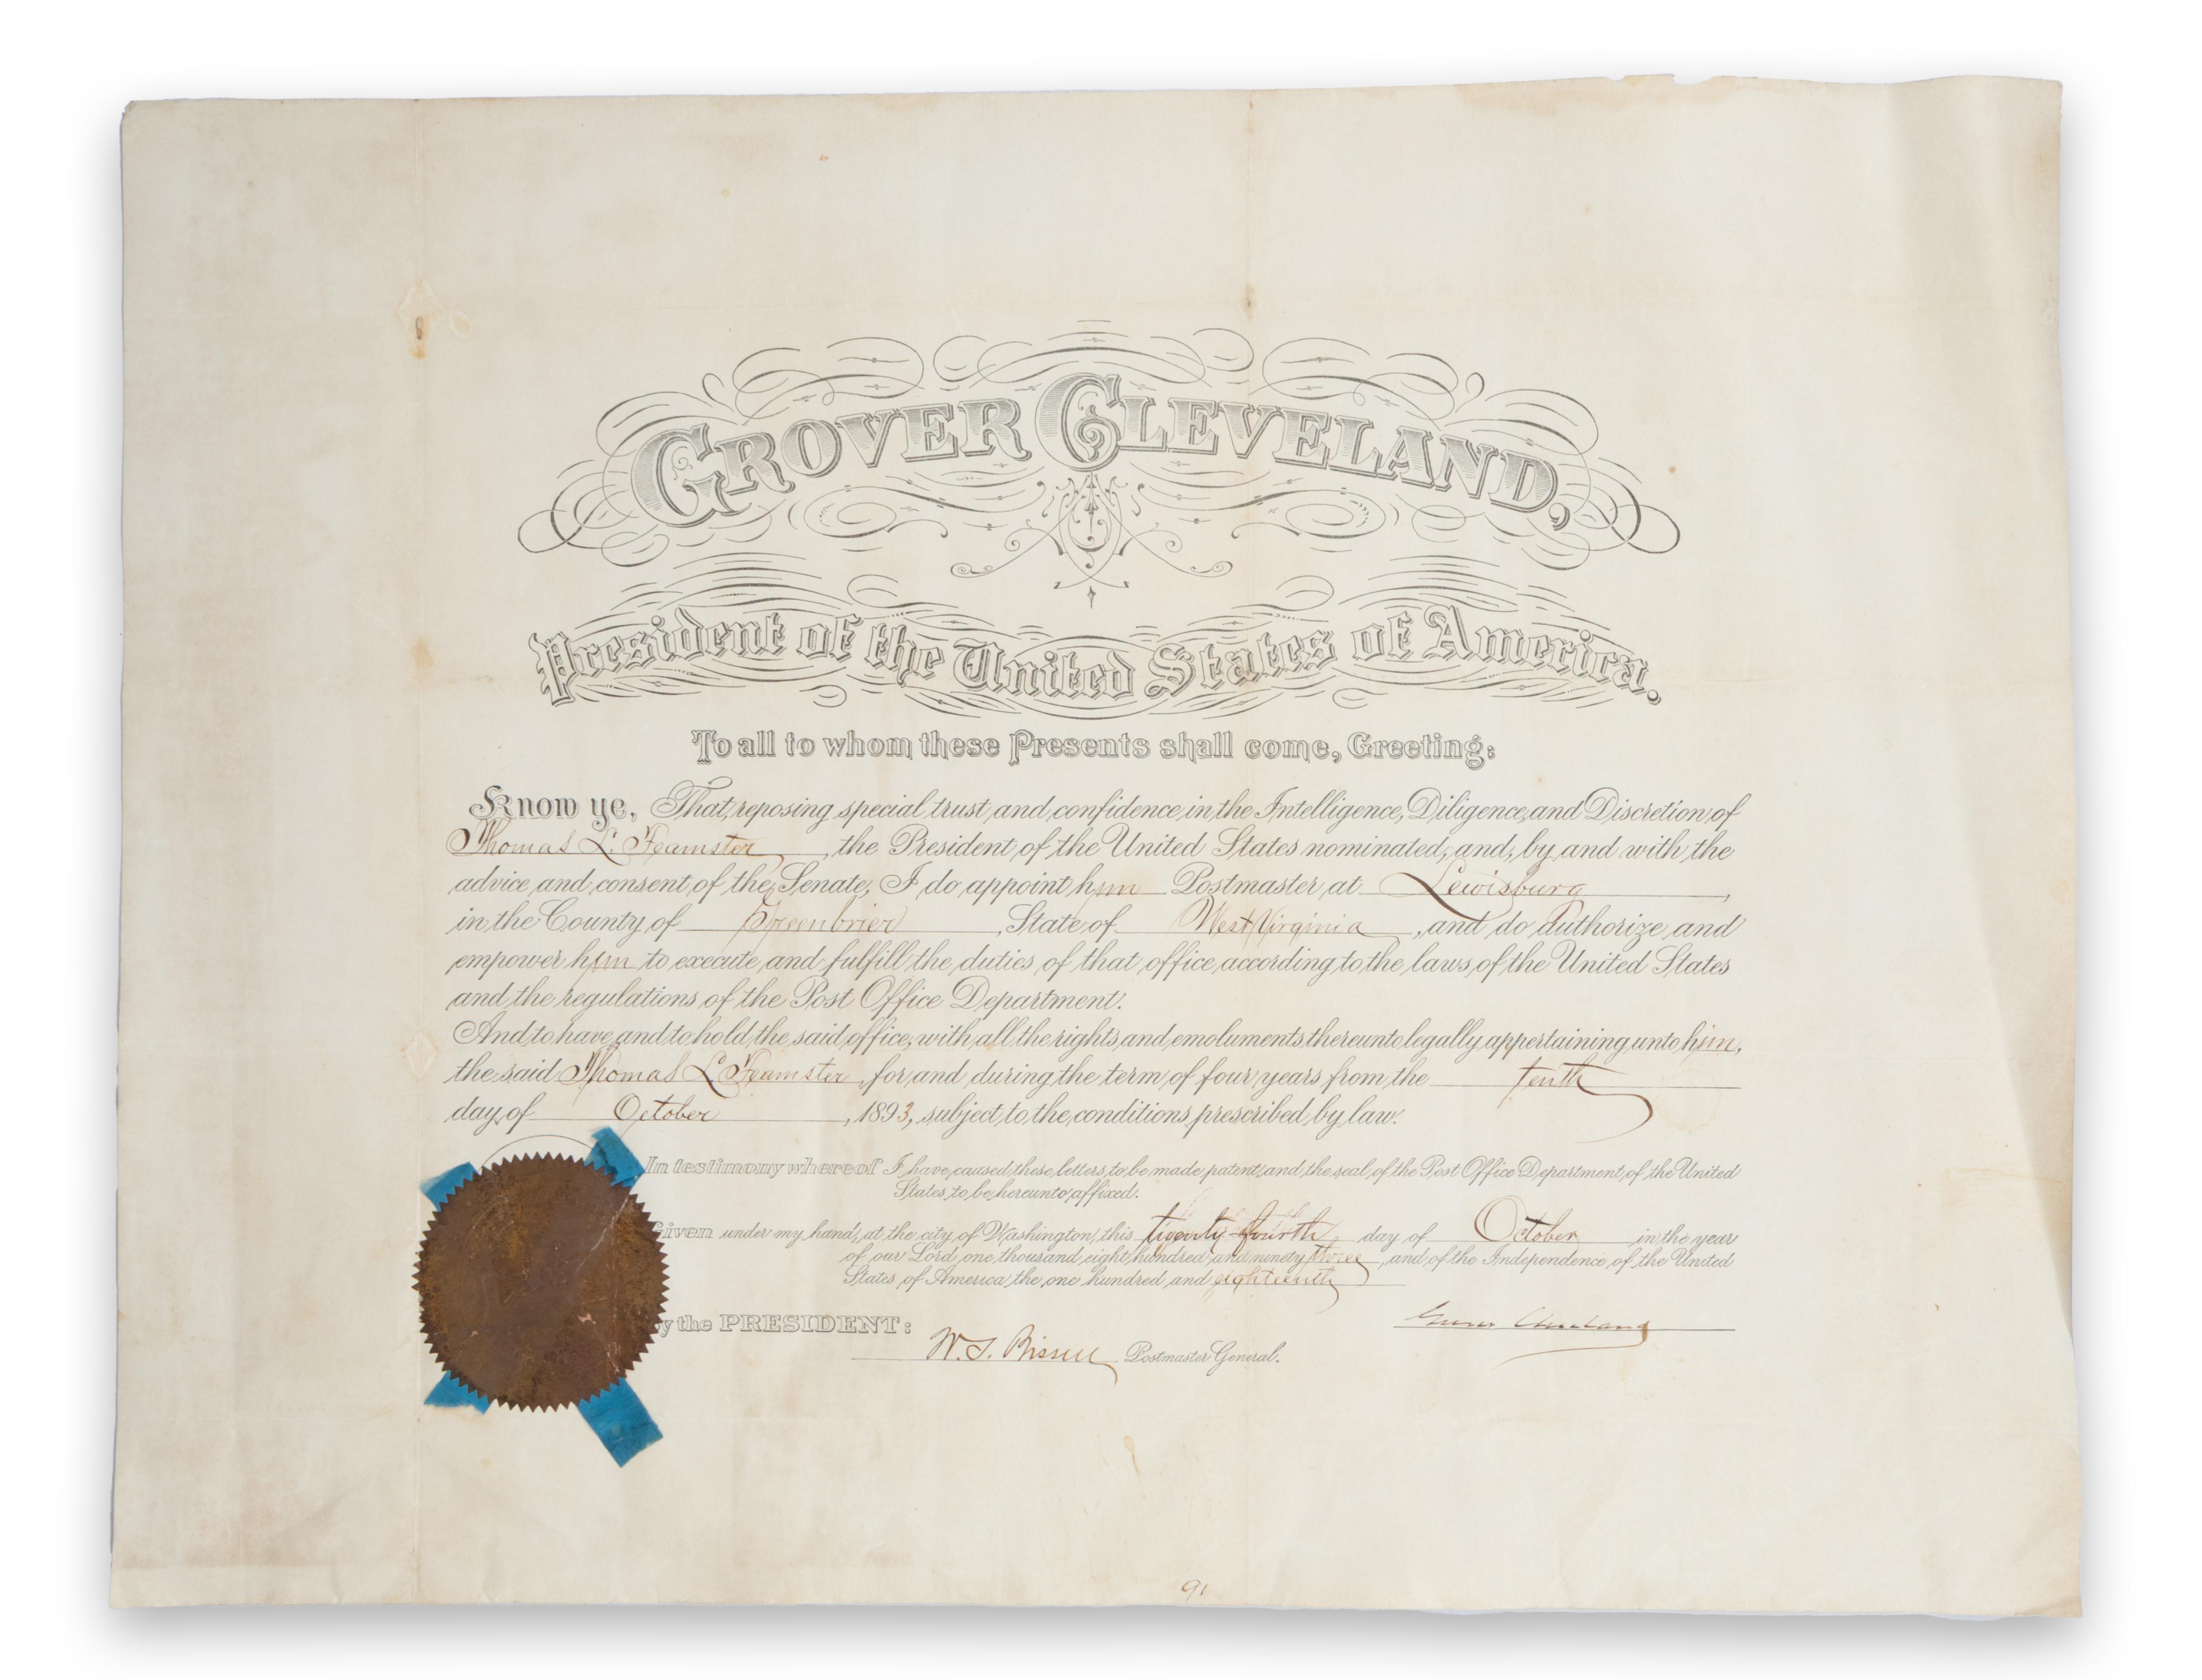 GROVER CLEVELAND,
President of the United States of America.
To all to whom these Presents shall come, Greeting:
Know ye, That, reposing special trust and confidence in the Intelligence, Diligence, and Discretion of
Thomas L. Feamster, the President of the United States nominated, and, by and with the
advice and consent of the Senate, I do appoint him Postmaster at Lewisburg,
in the County of Greenbrier, State of West Virginia, and do authorize and
empower him to execute and fulfill the duties of that office according to the laws of the United States
and the regulations of the Post Office Department.
And to have and to hold the said office, with all the rights and emoluments thereunto legally appertaining unto him,
the said Thomas L. Feamster, for and during the term of four years from the tenth
day of October, 1893, subject to the conditions prescribed by law.
In testimony whereof I have caused these letters to be made patent, and the seal of the Post Office Department of the United
States to be hereunto affixed.
Given under my hand, at the city of Washington, this twenty fourth day of October in the year
of our Lord one thousand eight hundred and ninety three, and of the Independence of the United
States of America the one hundred and eighteenth
y the PRESIDENT: Grover Cleveland
W. S. Bissell Postmaster General.
91